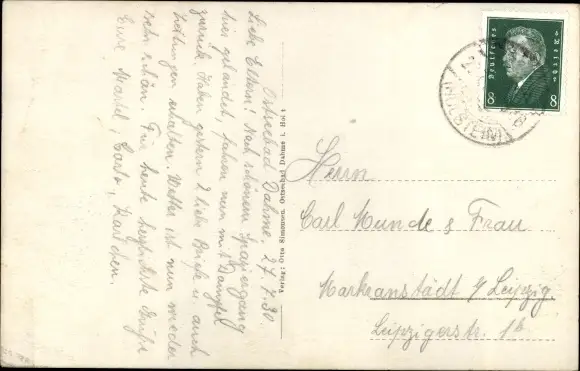 Ostseebad Dahme, 27.7.30.
Liebe Eltern! Nach schönem Spaziergang
hier gelandet, fahren nun mit Dampfer
zurück. Haben gestern 2 liebe Briefe u. auch
Zeitungen erhalten. Wetter ist nun wieder
sehr schön. Für heute herzlichste Grüße
Eure Mädel, Carlo, Karlchen.
Verlag: Otto Simonson, Ostseebad Dahme i. Hol
Deutsches Reich
8 8
Herrn
Carl Munde & Frau
Markranstädt b/ Leipzig.
Leipzigerstr. 1b